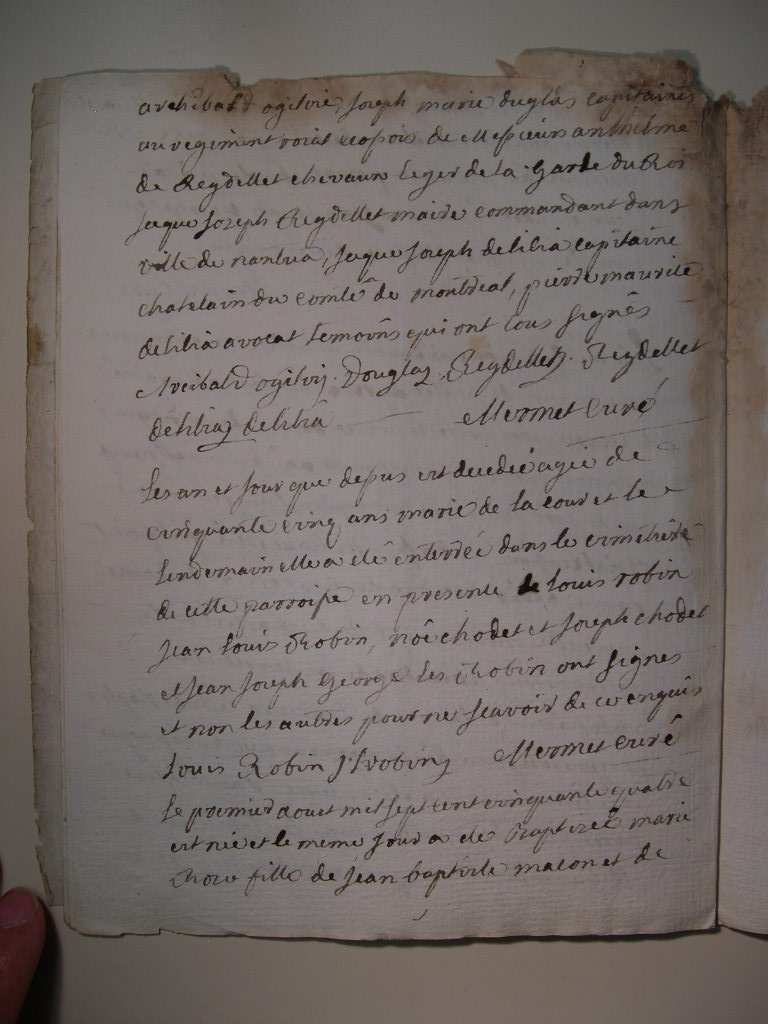 archibald ogilvie, Joseph marie duglas capitaines
au regiment roial ecosois de Messieurs anthelme
de Regdellet chevaux leger de la Garde du Roi
Jaque Joseph Regdellet maire commandant dans
ville de nantua, Jaque Joseph delilia capitaine
chatelain du comté de montreal, pierre maurice
delilia avocat temoins qui ont tous signés
Archibald ogilvy. Douglas. Regdellet. Regdellet
delilia delilia Mermet curé
Les an et jour que depus est decedeé ageé de
cinquante cinq ans marie de la cour et le
lendemain elle a été enterreé dans le cimetiere
de cette parroisse en presence de louis robin
Jean louis Robin, noé chodet et Joseph chodet
et Jean Joseph George les Robin ont signes
et non les autres pour ne scavoir de ce enquis
Louis Robin J l robin Mermet curé
Le premier aout mil sept cent cinquante quatre
est neé et le meme jour a eté Baptizeé marie
fille de jean baptiste macon et de